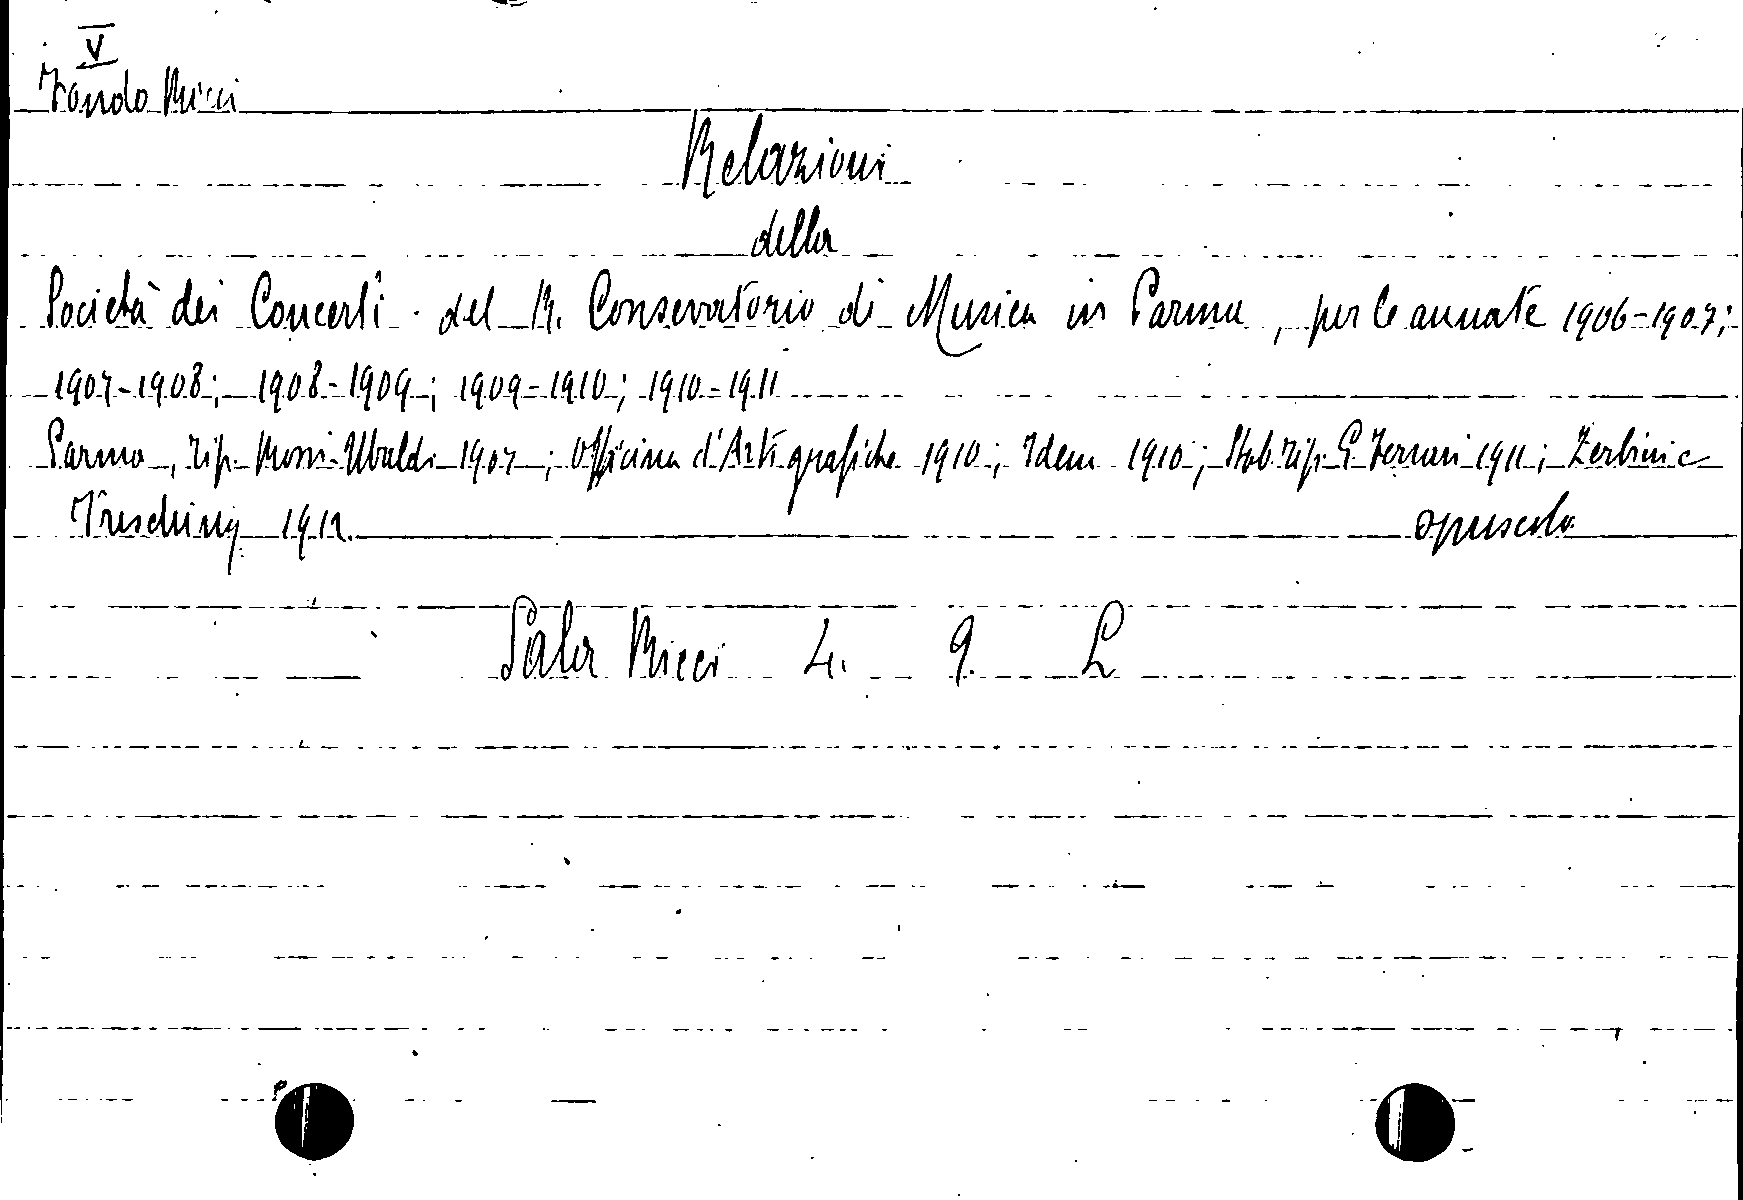 V
Fondo Ricci
Relazioni
della
Società dei Concerti del R. Conservatorio di Musica in Parma, per le annate 1906-1907;
1907-1908; 1908-1909; 1909-1910; 1910-1911
Parma, Tip. Rossi-Ubaldi 1907; Officina d'Arti grafiche 1910; Idem 1910; Stab. Tip. G. Ferrari 1911; Zerbini e
Fresching 1912.
opuscolo
Sala Ricci 4. 9. L